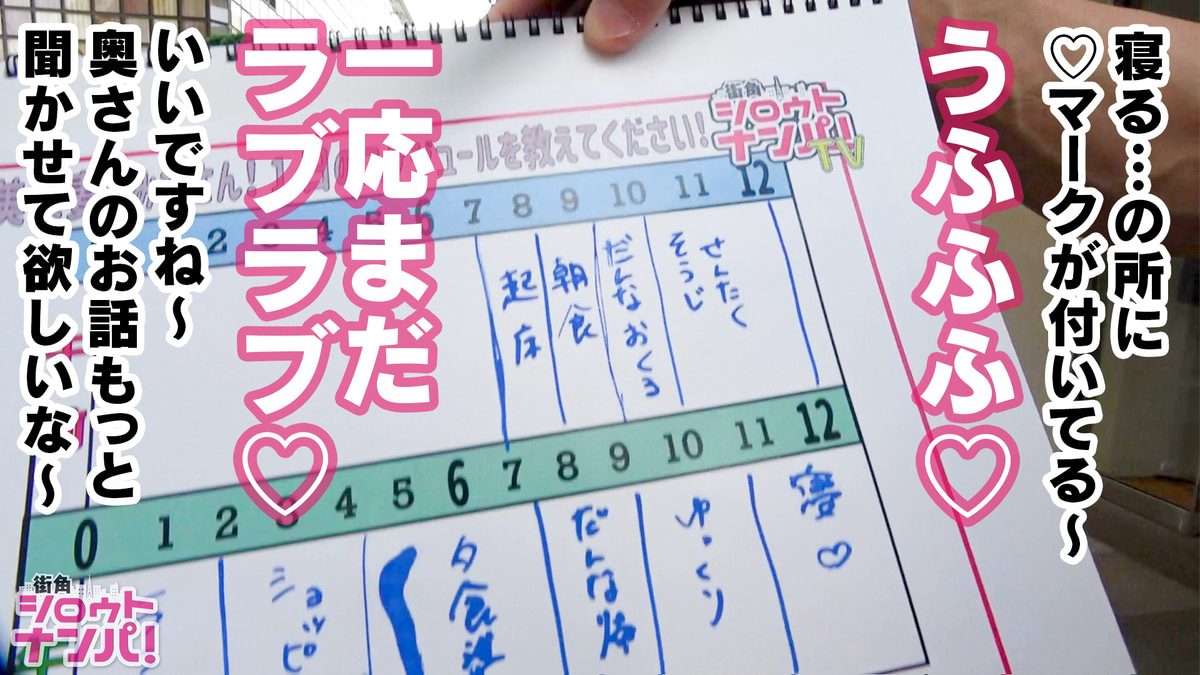 寝る…の所に
♡マークが付いてる～
うふふふ♡
一応まだ
ラブラブ♡
いいですね～
奥さんのお話もっと
聞かせて欲しいな～
街角
シロウト
ナンパ!
TV
ュールを教えてください!
2 3 4 5 6 7 8 9 10 11 12
起床
朝食
だんなおくる
せんたく
そうじ
0 1 2 3 4 5 6 7 8 9 10 11 12
ショッピ
夕食
だんな帰
ゆっくり
寝♡
街角
シロウト
ナンパ!